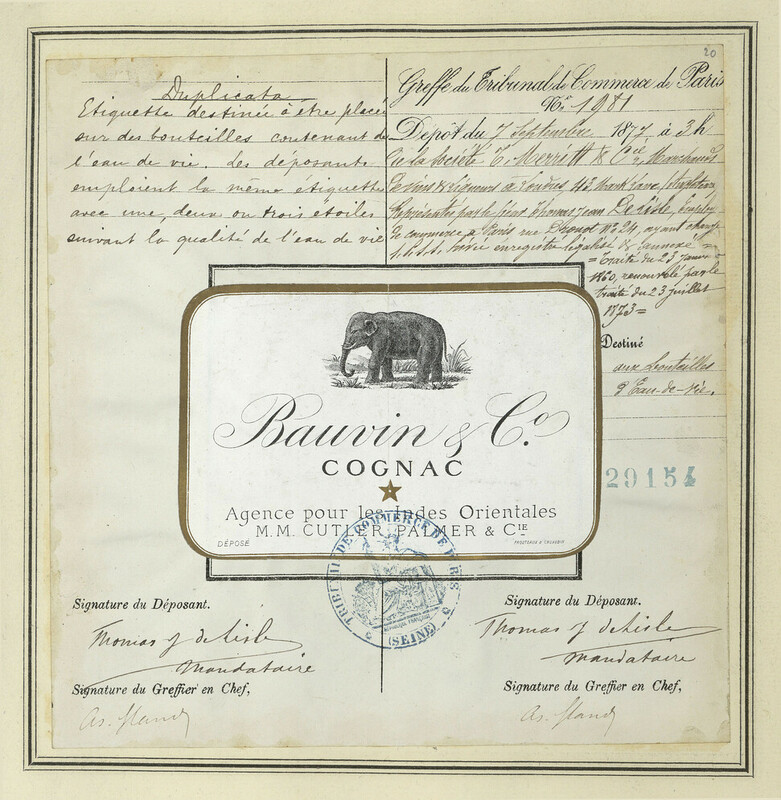 20
Duplicata
Etiquette destinée à être placée
sur des bouteilles contenant de
l'eau de vie. Les déposants
emploient la même étiquette
avec une, deux ou trois étoiles
suivant la qualité de l'eau de vie
Greffe du Tribunal de Commerce de Paris
No. 1981
Dépôt du 7 Septembre 1877 à 3h
de la Société T. Merritt & Cie Marchands
de vins & liqueurs à Londres, 43 Mark lane, Angleterre
Représentés par le sieur Thomas Jean Delisle,
de commerce, à Paris rue Drouot No 24, ayant charge
enregistré légalisé & annexé
= Traité du 23 Janvier
1860, renouvelé par le
traité du 23 juillet
1873 =
Destiné
aux bouteilles
d'Eau-de-vie.
Bauvin & Co.
COGNAC
Agence pour les Indes Orientales
M.M. CUTLER, PALMER & CIE
DÉPOSÉ
29154
TRIBUNAL DE COMMERCE DE PARIS
RÉPUBLIQUE FRANÇAISE
(SEINE)
Signature du Déposant.
Thomas J de Lisle
Mandataire
Signature du Greffier en Chef,
Signature du Déposant.
Thomas J de Lisle
Mandataire
Signature du Greffier en Chef,